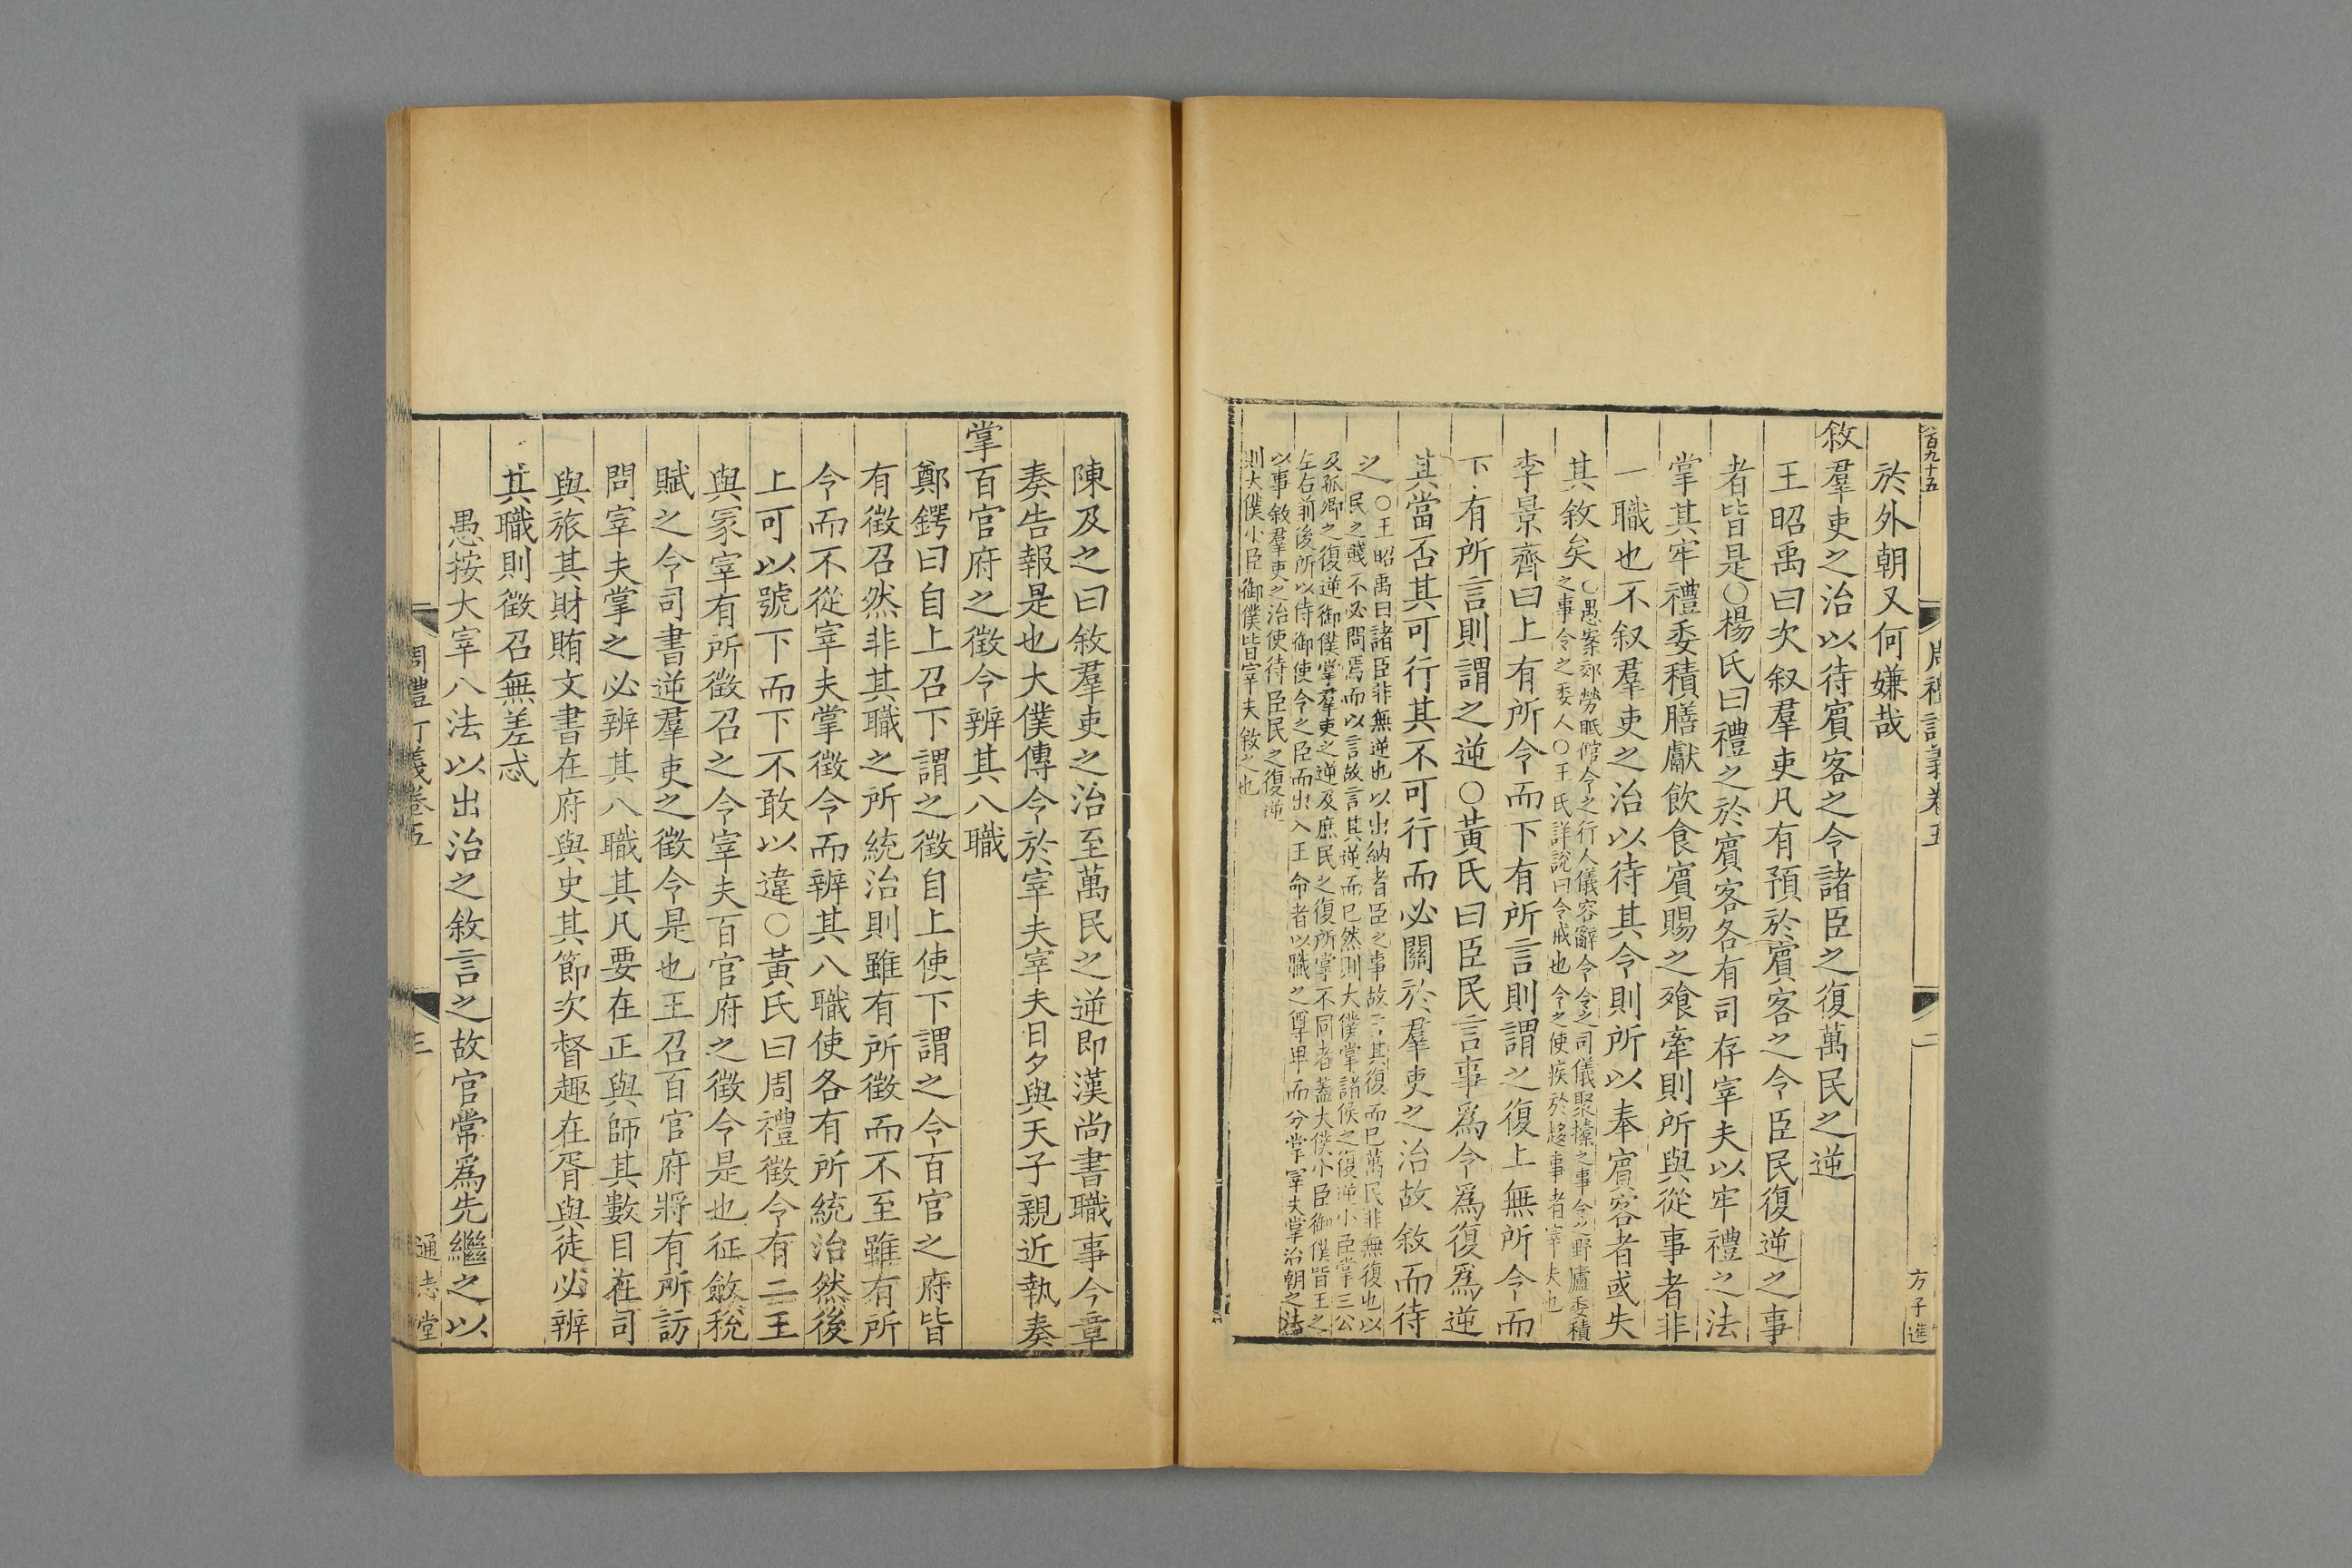 百九十五
周禮訂義卷五
二
方子進
於外朝又何嫌哉
敘羣吏之治以待賓客之令諸臣之復萬民之逆
王昭禹曰次叙羣吏凡有預於賓客之令臣民復逆之事
者皆是○楊氏曰禮之於賓客各有司存宰夫以牢禮之法
掌其牢禮委積膳獻飲食賓賜之飧牽則所與從事者非
一職也不叙羣吏之治以待其令則所以奉賓客者或失
其敘矣
○愚案郊勞眂館令之行人儀容辭令令之司儀聚㯓之事令之野廬委積
之事令之委人○王氏詳說曰令戒也令之使疾於趍事者宰夫也
李景齊曰上有所令而下有所言則謂之復上無所令而
下有所言則謂之逆○黃氏曰臣民言事爲令爲復爲逆
其當否其可行其不可行而必關於羣吏之治故敘而待
之
○王昭禹曰諸臣非無逆也以出納者臣之事故言其復而已萬民非無復也以
民之賤不必問焉而以言故言其逆而已然則大僕掌諸侯之復逆小臣掌三公
及孤卿之復逆御僕掌羣吏之逆及庶民之復所掌不同者蓋大僕小臣御僕皆王之
左右前後所以侍御使令之臣而出入王命者以職之尊卑而分掌宰夫掌治朝之法
以事敘羣吏之治使待臣民之復逆
則大僕小臣御僕皆宰夫敘之也
陳及之曰敘羣吏之治至萬民之逆即漢尚書職事今章
奏告報是也大僕傳令於宰夫宰夫日夕與天子親近執奏
掌百官府之徵令辨其八職
鄭鍔曰自上召下謂之徵自上使下謂之令百官之府皆
有徵召然非其職之所統治則雖有所徵而不至雖有所
令而不從宰夫掌徵令而辨其八職使各有所統治然後
上可以號下而下不敢以違○黃氏曰周禮徵令有二王
與冢宰有所徵召之令宰夫百官府之徵令是也征斂稅
賦之令司書逆羣吏之徵令是也王召百官府將有所訪
問宰夫掌之必辨其八職其凡要在正與師其數目在司
與旅其財賄文書在府與史其節次督趣在胥與徒必辨
其職則徵召無差忒
愚按大宰八法以出治之敘言之故官常爲先繼之以
周禮訂義卷五
三
通志堂